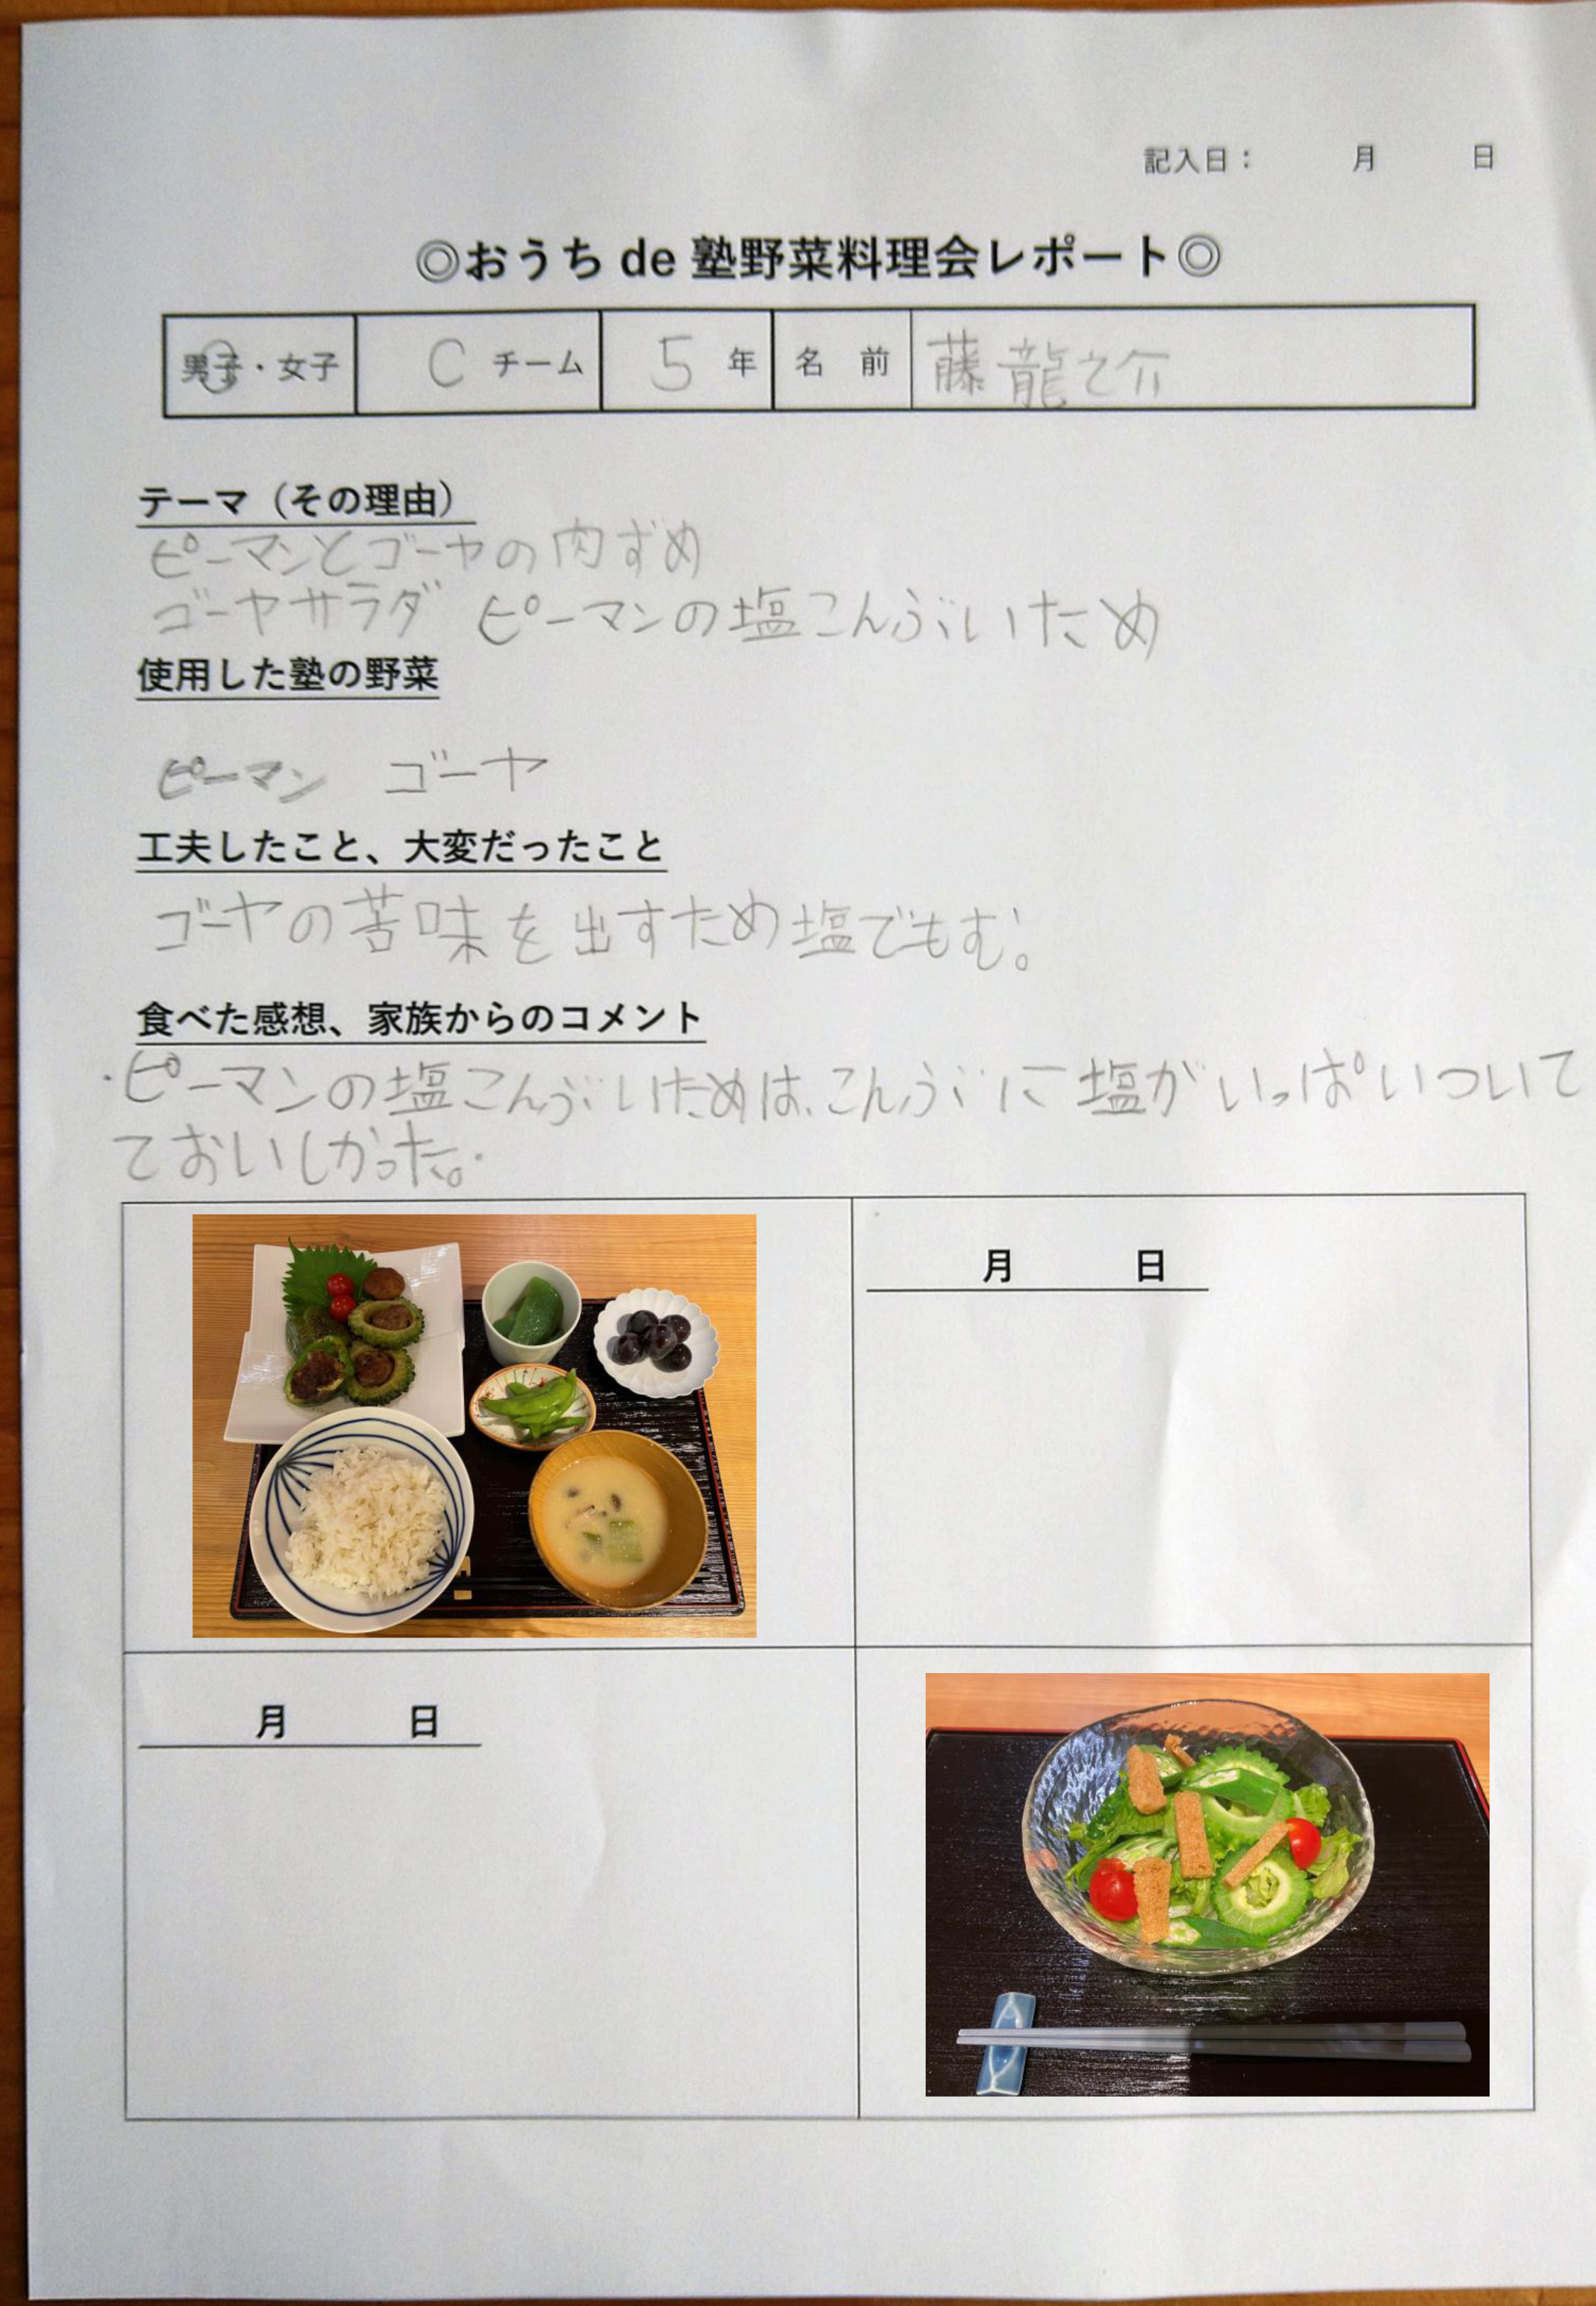 記入日： 月 日
◎おうち de 塾野菜料理会レポート◎
男子・女子 C チーム 5 年 名 前 藤 龍之介
テーマ（その理由）
ピーマンとゴーヤの肉ずめ
ゴーヤサラダ ピーマンの塩こんぶいため
使用した塾の野菜
ピーマン ゴーヤ
工夫したこと、大変だったこと
ゴーヤの苦味を出すため塩でもむ。
食べた感想、家族からのコメント
・ピーマンの塩こんぶいためは、こんぶに塩がいっぱいついて
ておいしかった。
月 日
月 日